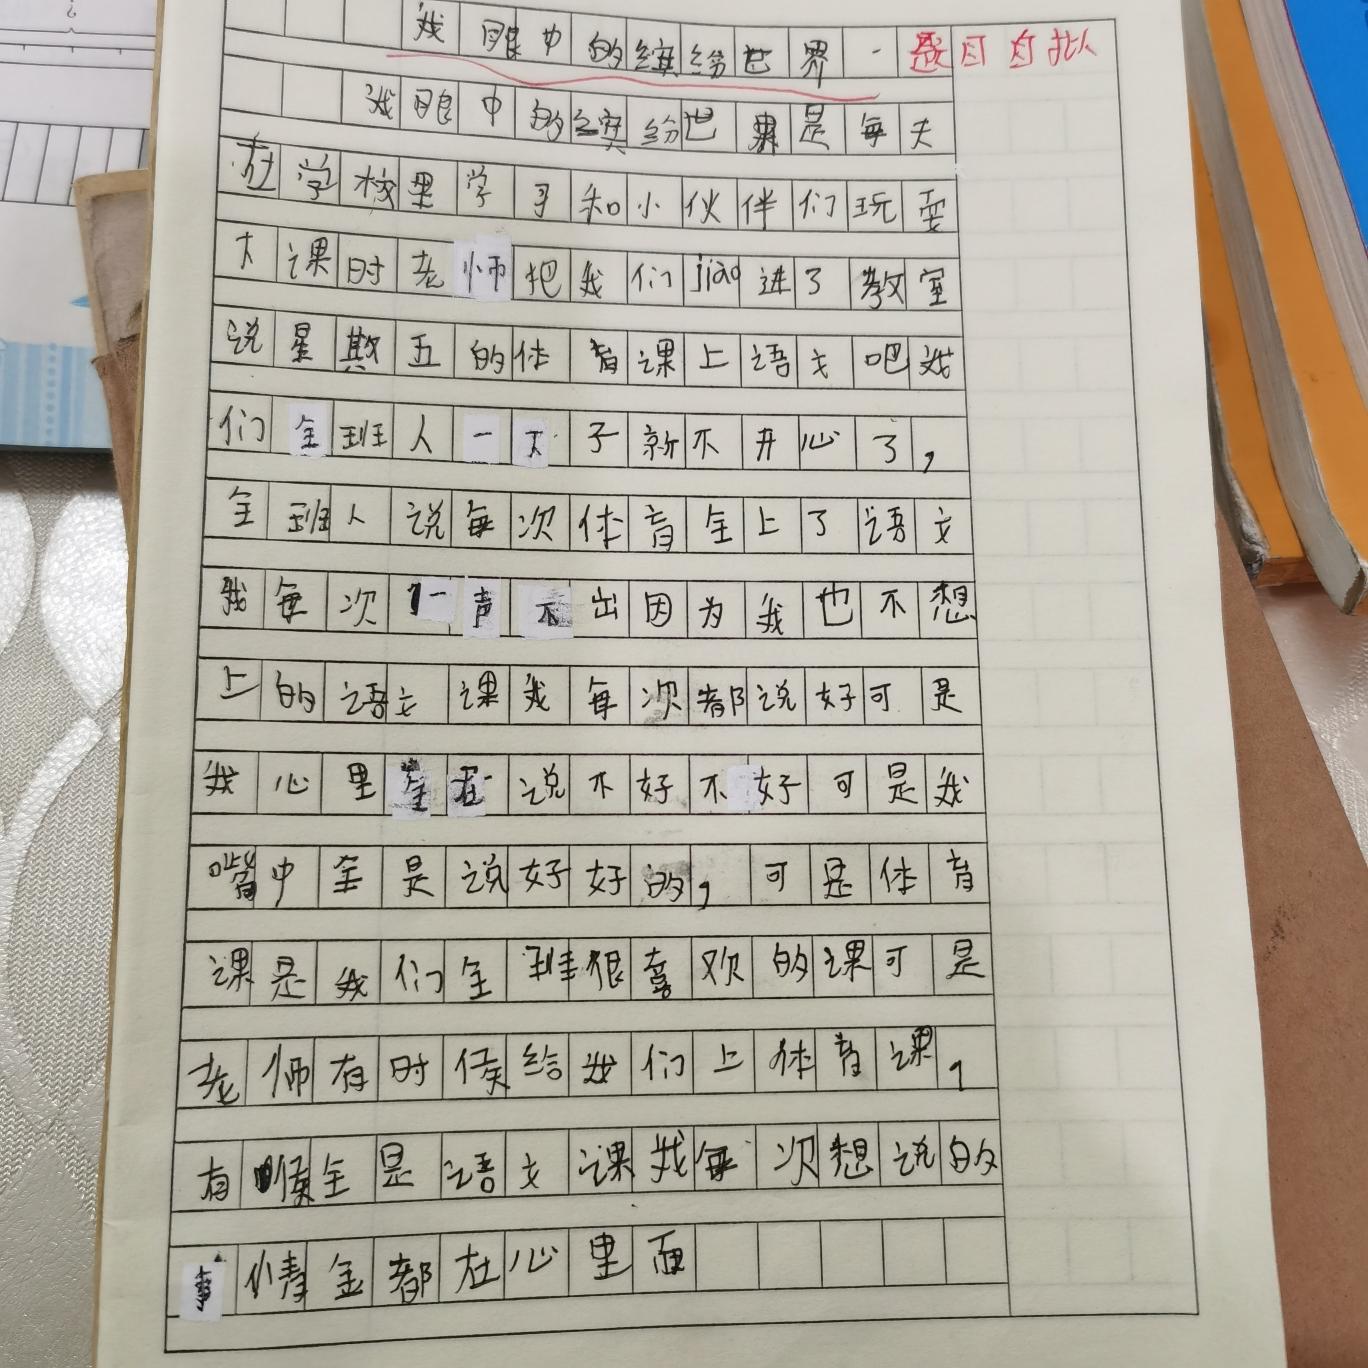 我眼中的缤纷世界 - 题目自拟
我眼中的缤纷世界是每天
在学校里学习和小伙伴们玩耍
下课时老师把我们jiao进了教室
说星期五的体育课上语文吧我
们全班人一下子就不开心了，
全班人说每次体育全上了语文
我每次一声不出因为我也不想
上的语文课我每次都说好可是
我心里全在说不好不好可是我
嘴中全是说好好的，可是体育
课是我们全班很喜欢的课可是
老师有时候给我们上体育课，
有候全是语文课我每次想说的
事情全都在心里面